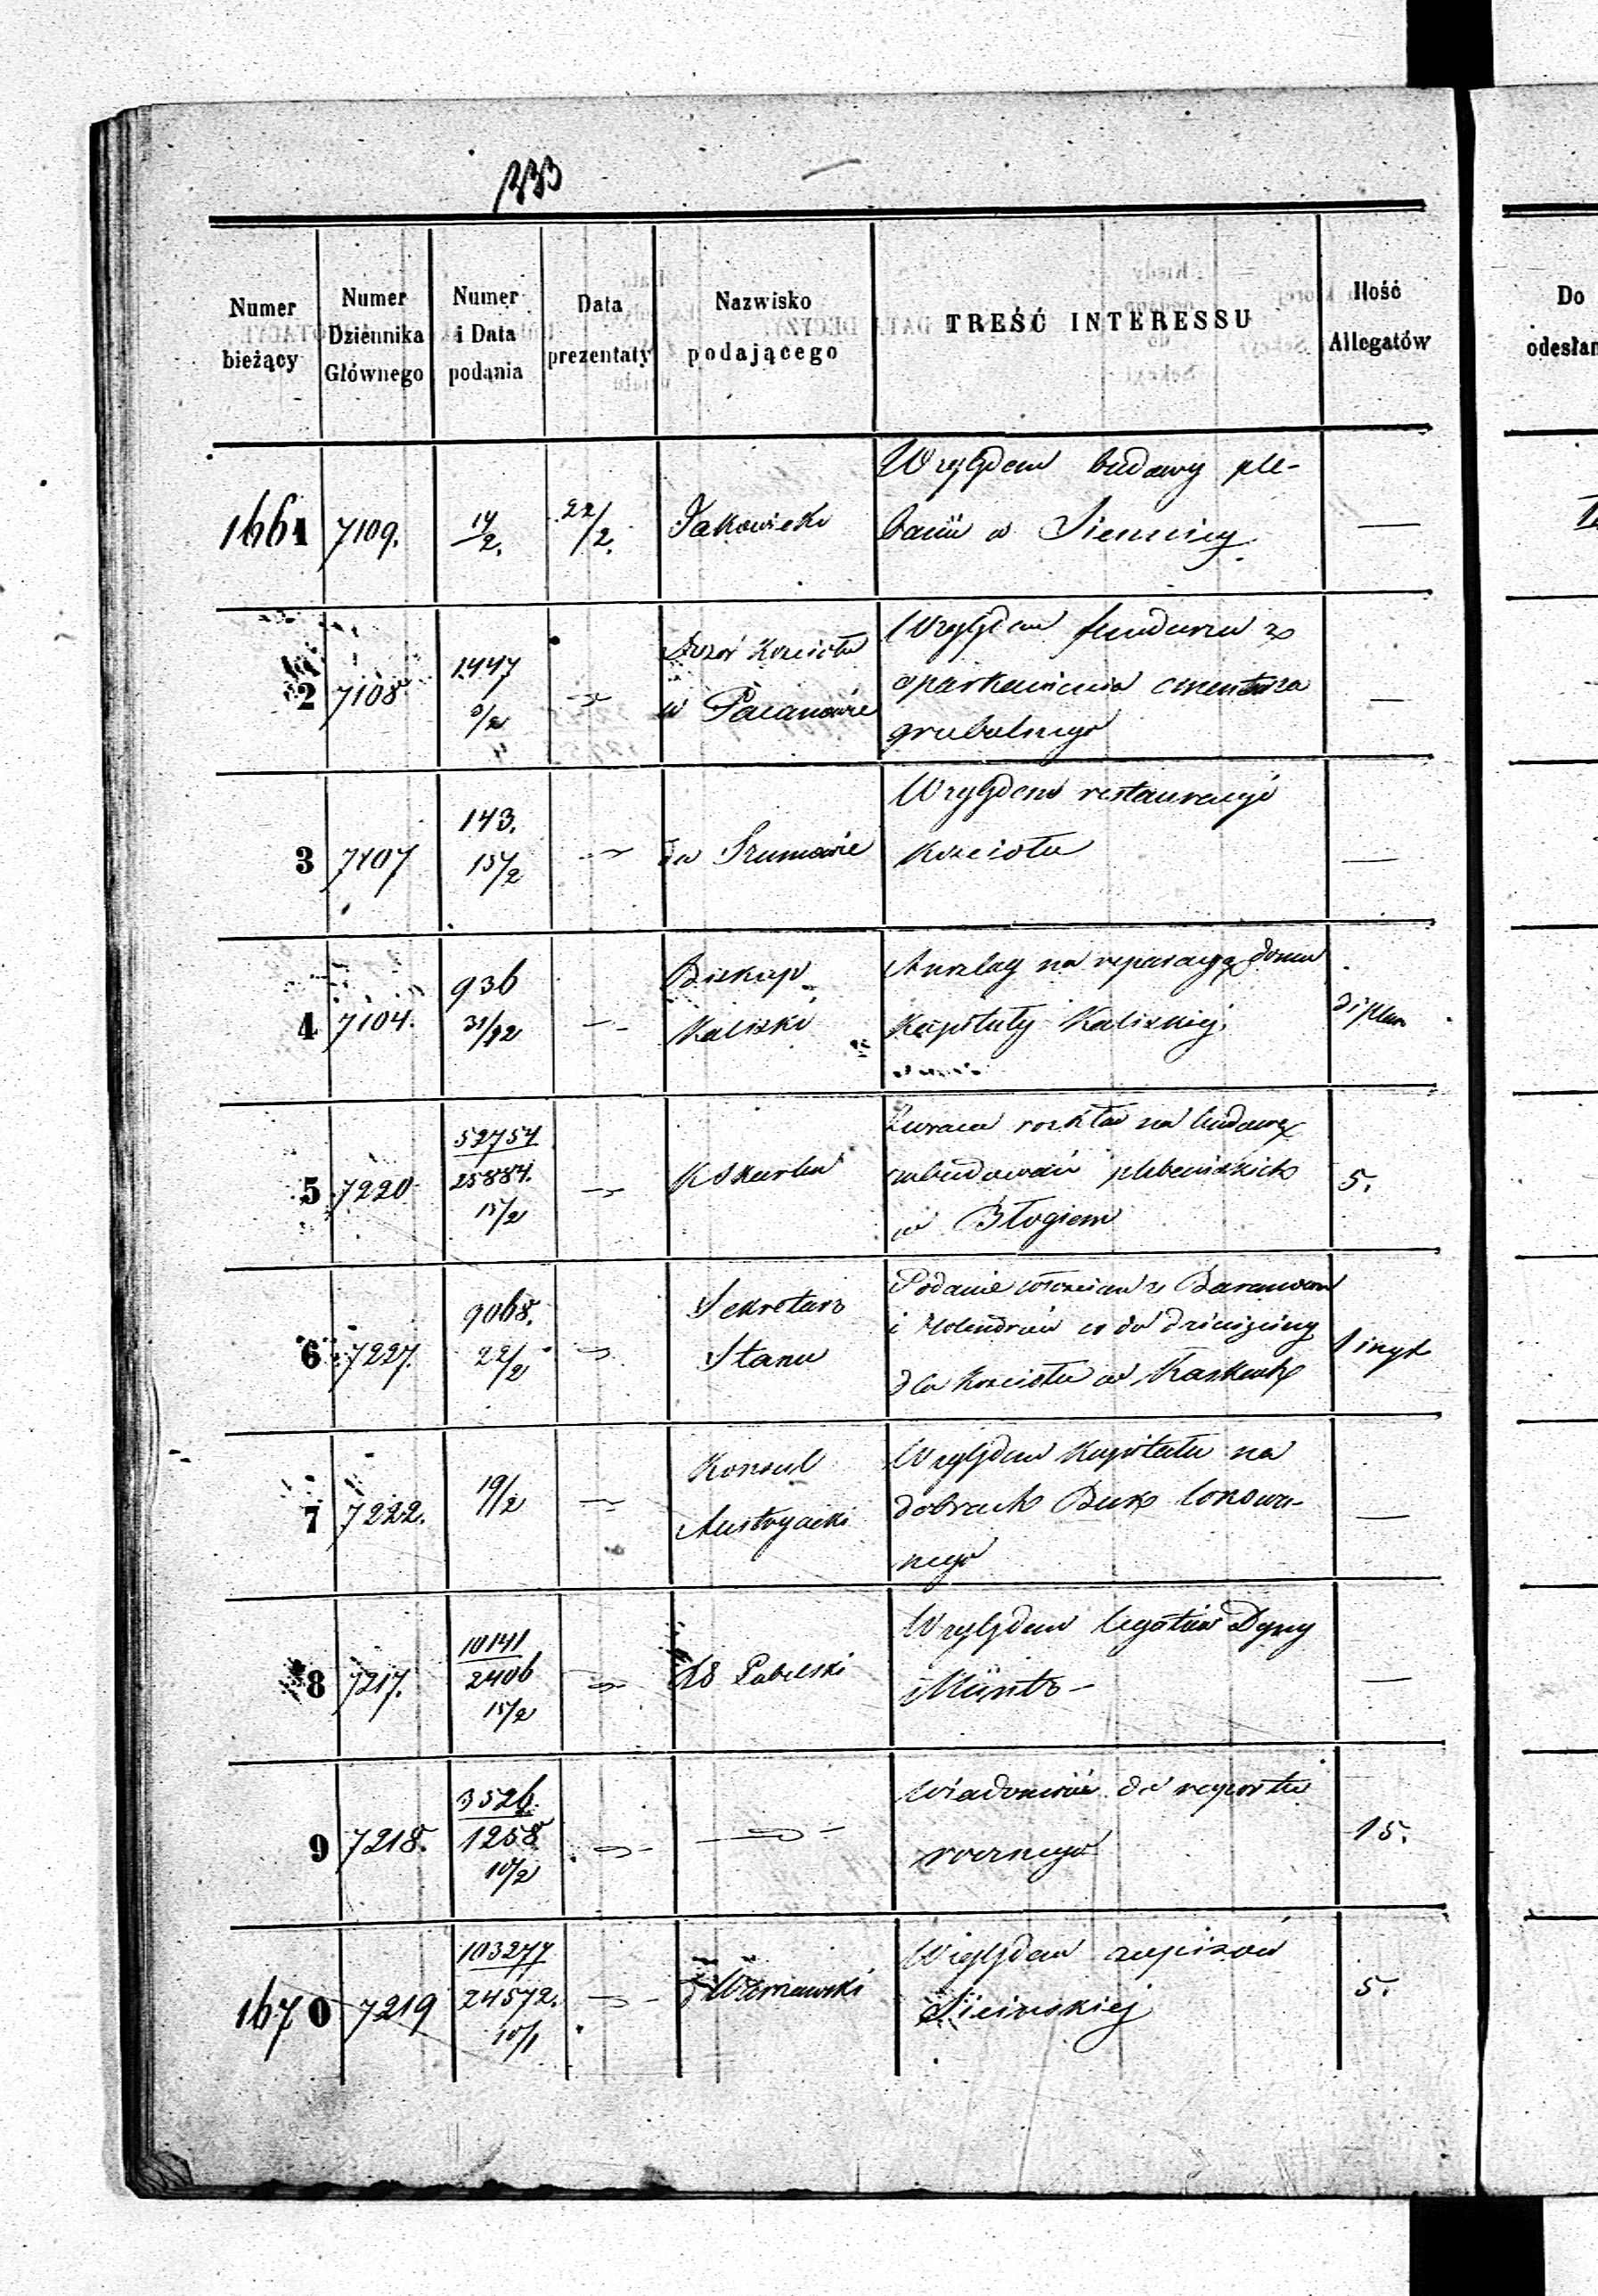 233
Numer bieżący
Numer Dziennika Głównego
Numer i Data podania
Data prezentaty
Nazwisko podającego
TREŚĆ INTERESSU
Ilość Allegatów
Do
odesłan
1661 7109. 14/2. 22/2. Jakowicki
Względem budowy ple-
banii w Siennicy. —
2 7108 1447
Dozór Kościoła
w Pacanowie
Względem funduszu z
oparkanienia cmentarza
grzebalnego —
3 7107 143.
15/2
w Szumowie
Względem restauracyi
Kościoła —
4 7104. 936
31/12
Biskup
Kaliski
Anszlag na reparacyą domu
Kapituły Kaliskiej.
5 7220 52754
25884.
15/2
K Skarbu
Zwraca rozkład na budowę
zabudowań plebańskich
w Błogiem
5.
6 7227. 9068.
22/2
Sekretarz
Stanu
Podanie włościan z
i Holendrów co do dziesięciny
dla Kościoła w Kaskach
7 7222. 19/2
Konsul
Austryacki
Względem Kapitału na
dobrach lokowa-
nego —
8 7217. 10141
2406
15/2
Lubelski
Względem legatów
—
9 7218. 3526.
1258
10/2
Wiadomość do raportu
rocznego
15.
1670 7219 103277
24572.
10/1
Warszawski
Względem zapisów
5.